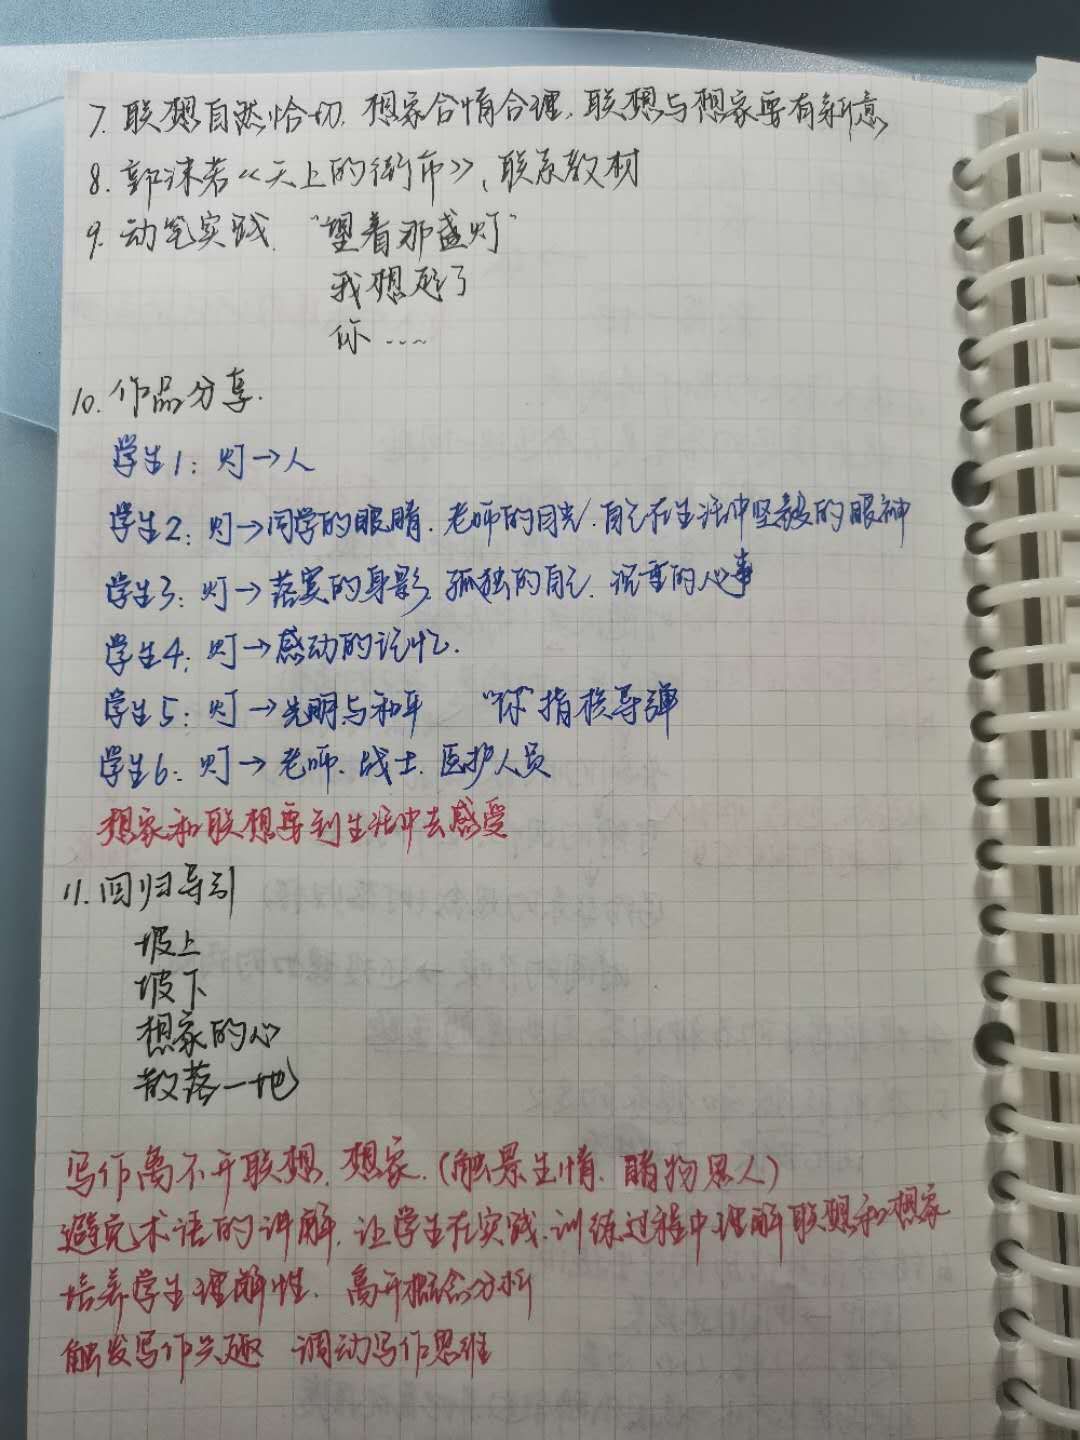 7. 联想自然恰切. 想象合情合理. 联想与想象要有新意
8. 郭沫若《天上的街市》、联系教材
9. 动笔实践. "望着那盏灯"
我想起了
你……
10. 作品分享.
学生1: 灯→人
学生2: 灯→同学的眼睛. 老师的目光. 自己在生活中坚毅的眼神
学生3: 灯→落寞的身影. 孤独的自己. 沉重的心事
学生4: 灯→感动的记忆.
学生5: 灯→光明与和平 "你"指核导弹
学生6: 灯→老师. 战士. 医护人员
想象和联想要到生活中去感受
11. 回归导引
坡上
坡下
想家的心
散落一地
写作离不开联想. 想象. (触景生情. 睹物思人)
避免术语的讲解. 让学生在实践.训练过程中理解联想和想象
培养学生理解性. 离开概念分析
触发写作兴趣 调动写作思维